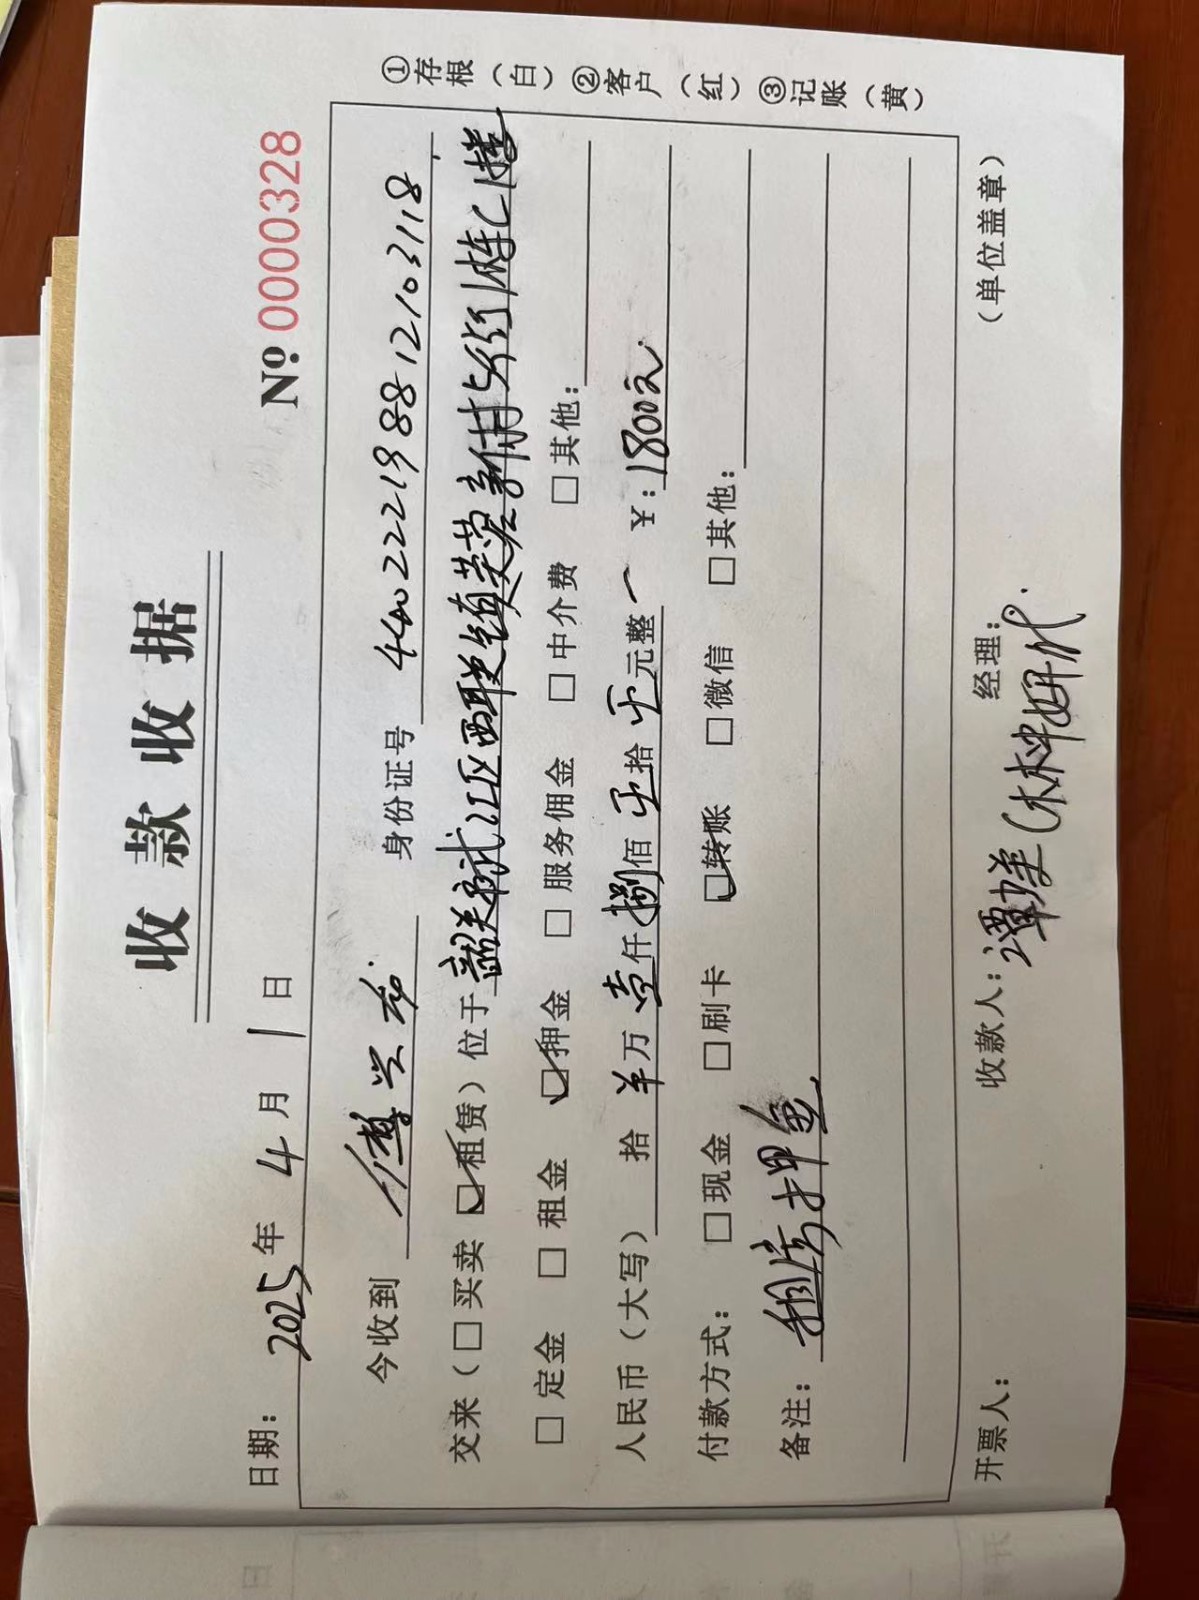 收款收据
日期：2025年4月1日 №0000328
今收到 身份证号 440222198812103118
交来（□买卖 ☑租赁）位于韶关市武江区西联镇芙蓉新村 1栋C1楼
□定金 □租金 ☑押金 □服务佣金 □中介费 □其他：
人民币（大写） 拾 羊万壹仟捌佰 拾 元整 ¥：1800元.
付款方式： □现金 □刷卡 ☑转账 □微信 □其他：
备注： 租房押金
开票人： 收款人：谭 经理： （单位盖章）
①存根（白）②客户（红）③记账（黄）